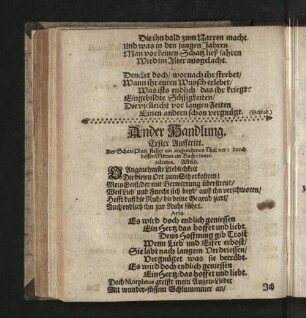 Die ihn bald zum Narren macht
Und was in den jungen Jahren
Man vor seinen Schatz ließ fahren
Wird im Alter ausgelacht.
Dencket doch/ wornach ihr strebet/
Wann ihr euren Wunsch erlebet/
Was ists endlich das ihr kriegt:
Eingebildte Süssigkeiten/
Die vieleicht vor langen Zeiten
Einen andern schon vergnügt.
Ander Handlung.
Erster Auftritt.
Der Schau-Platz stellet ein angenehmes Thal vor/ durch
dessen Mitten ein Bach rinnet.
Allein.
Angenehmste Lieblichkeit
Die diesen Ort zum Sitz erkohren/
Mein Geist der mit Verwirrung überstreut/
Weil Lieb und Furcht sich heyd' auf ihn verschworen/
Hofft daß die Ruh/ die deine Gegend ziert/
Auch endlich ihn zur Ruhe führt.
Aria.
Es wird doch endlich geniessen
Ein Hertz das hoffet und liebt.
Denn Hoffnung gibt Trost
Wenn Lieb und Eifer erbost/
Sie labt nach langem Verdriessen/
Vergnüget was sie betrübt.
Es wird doch endlich geniessen
Ein Hertz das hoffet und liebt.
Doch Morpheus greifft mein Augen-Lieder
Mit wunder-süssem Schlummer an/
Ich